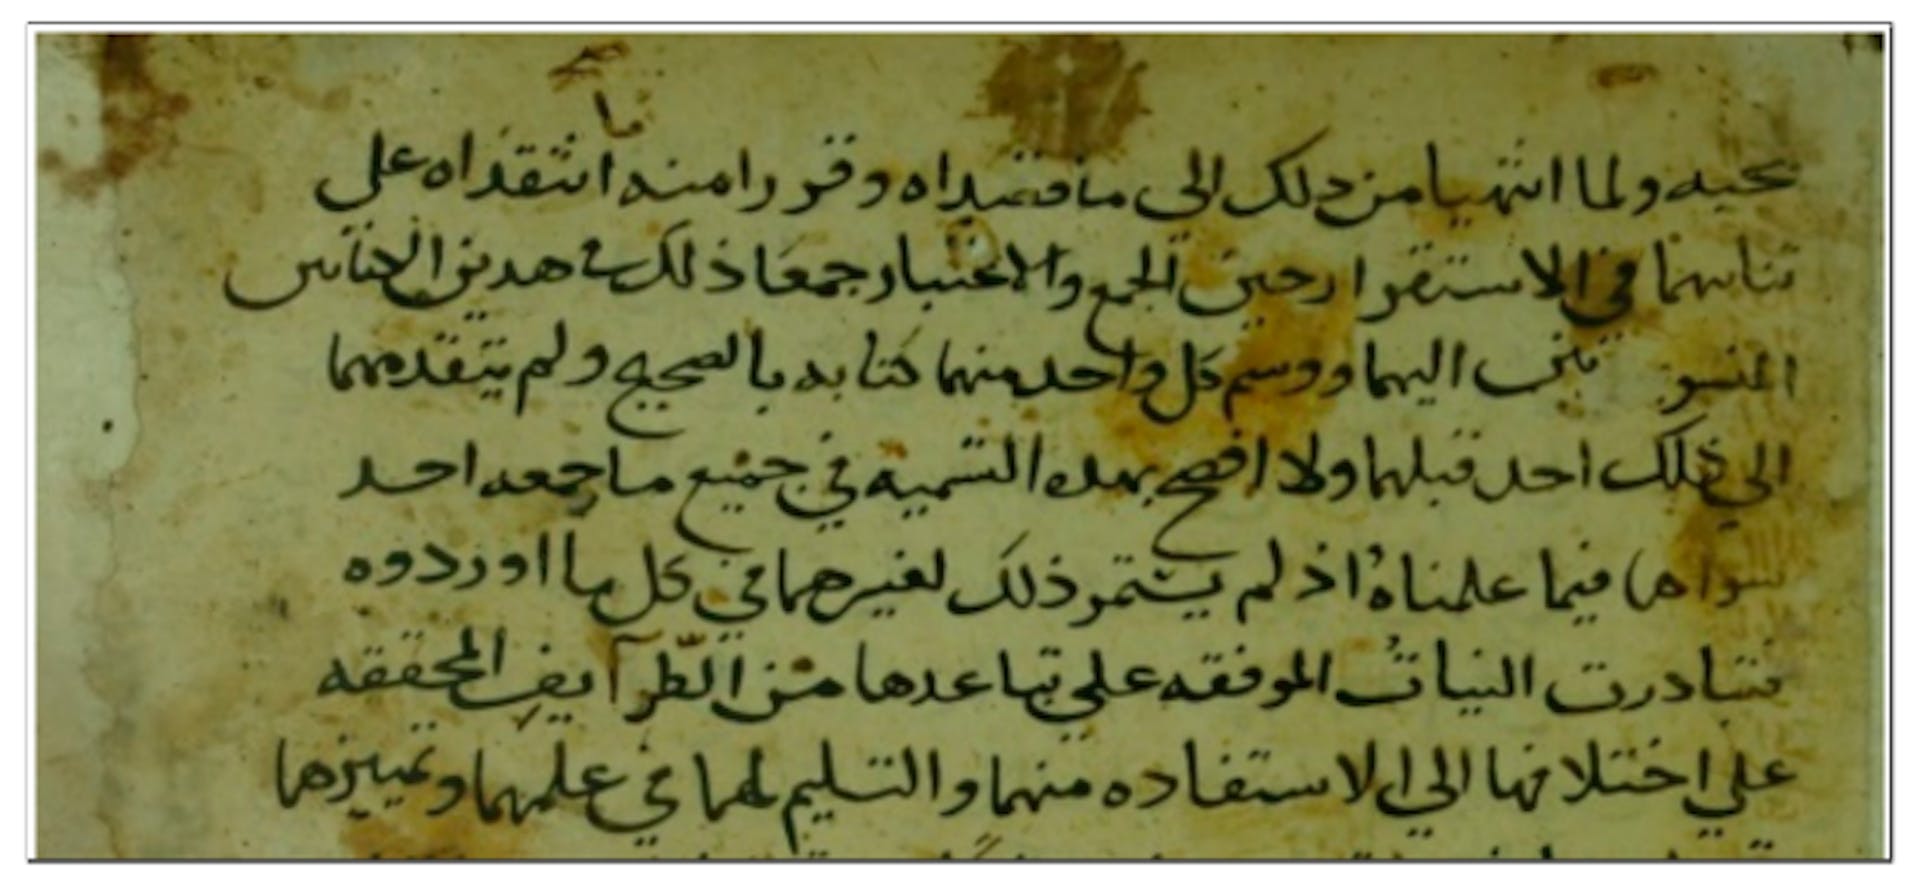 ما
نحبه ولما انتهيا من ذلك الى ما قصداه وقررا منه انتقداه على
تناسبهما في الاستقرار حين الجمع والاعتبار جمعا ذلك في هدين الكتابين
المنسوبين اليهما ووسم كل واحد منهما كتابه بالصحيح ولم يتقدمهما
الي ذلك احد قبلهما ولا افصح بهده التسميه في جميع ما جمعه احد
سواهما فيما علمناه اذ لم يستمر ذلك لغيرهما في كل ما اوردوه
فتبادرت النيات الموفقه علي تباعدها من الطرآيف المحققه
علي اختلافها الي الاستفاده منهما والتسليم لهما في علمهما وتمييزهما